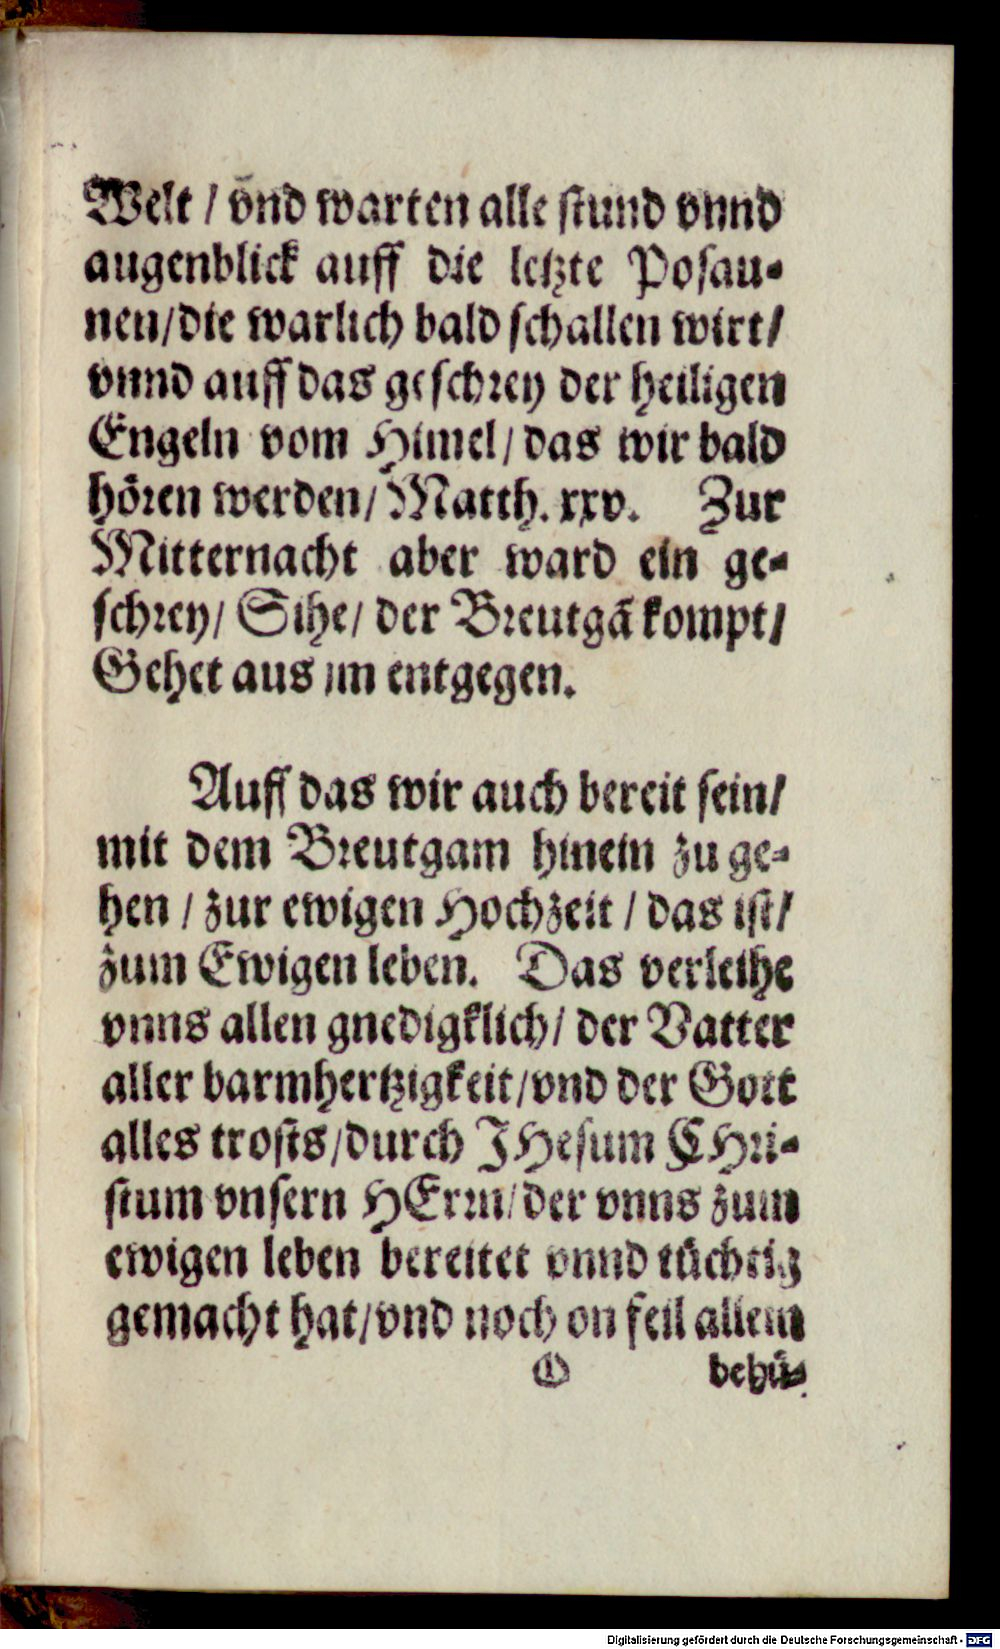 Welt / vnd warten alle stund vnnd
augenblick auff die letzte Posau-
nen/die warlich bald schallen wirt/
vnnd auff das geschrey der heiligen
Engeln vom Himel/ das wir bald
hören werden/ Matth. xxv. Zur
Mitternacht aber ward ein ge-
schrey/ Sihe/ der Breutgā kompt/
Gehet aus im entgegen.
Auff das wir auch bereit sein/
mit dem Breutgam hinein zu ge-
hen / zur ewigen Hochzeit / das ist/
zum Ewigen leben. Das verleihe
vnns allen gnedigklich/ der Vatter
aller barmhertzigkeit/vnd der Gott
alles trosts/durch JHesum CHri-
stum vnsern HErrn/der vnns zum
ewigen leben bereitet vnnd tüchtig
gemacht hat/vnd noch on feil allein
O behü-
Digitalisierung gefördert durch die Deutsche Forschungsgemeinschaft - DFG